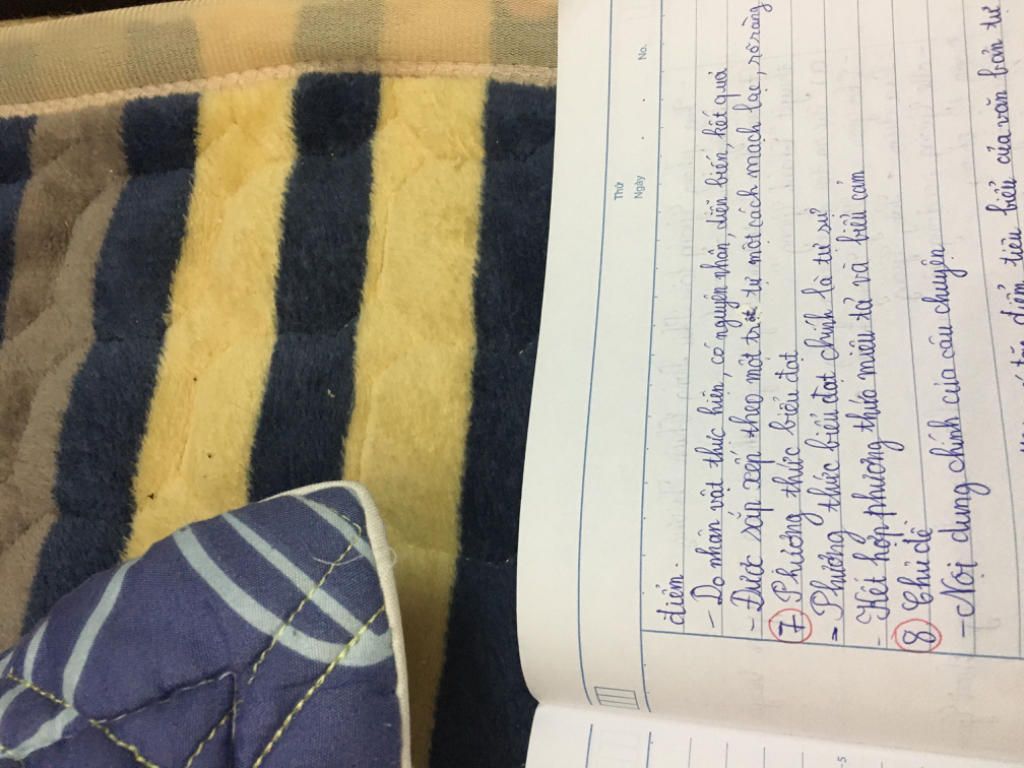 Thứ
Ngày
No.
điểm.
- Do nhân vật thực hiện, có nguyên nhân, diễn biến, kết quả
- Được sắp xếp theo một trật tự một cách mạch lạc, rõ ràng
7 Phương thức biểu đạt
- Phương thức biểu đạt chính là tự sự
- Kết hợp phương thức miêu tả và biểu cảm
8 Chủ đề
- Nội dung chính của câu chuyện
điểm tiêu biểu của văn bản tự